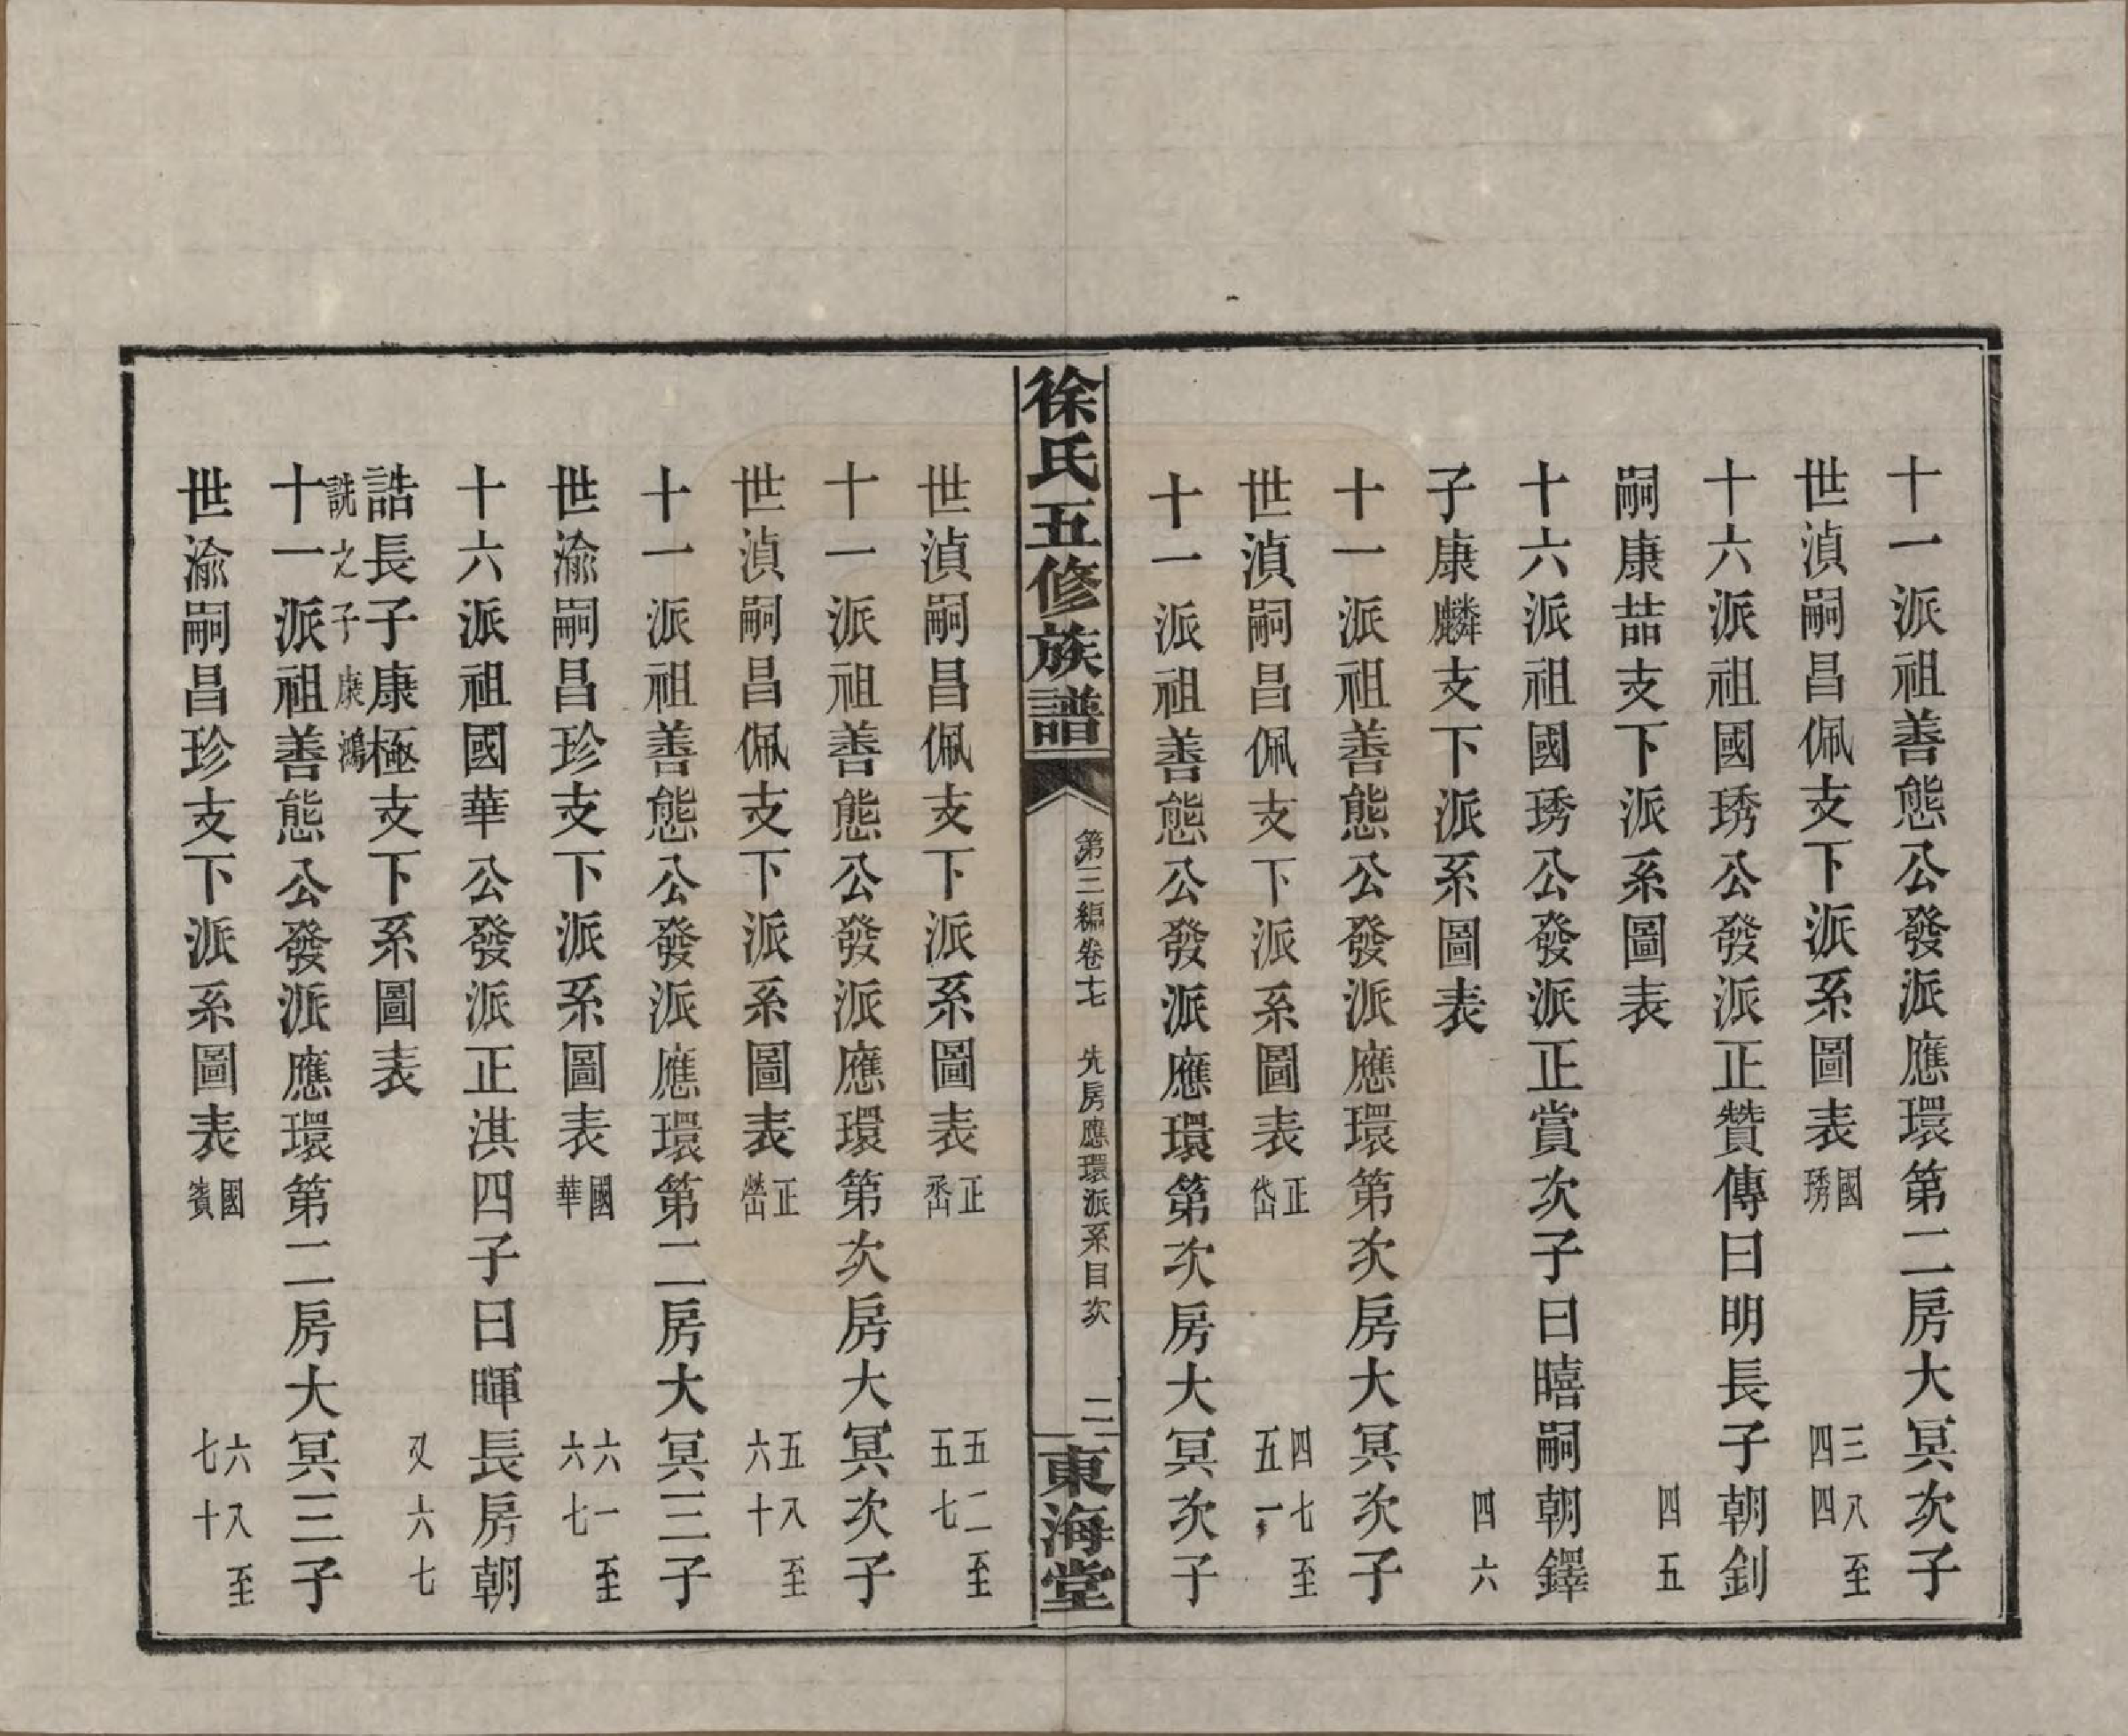 十一派祖善態公發派應環第二房大冥次子
世湞嗣昌佩支下派系圖表國琇 三八至四四
十六派祖國琇公發派正贊傳曰明長子朝釗
嗣康喆支下派系圖表 四五
十六派祖國琇公發派正賞次子曰暿嗣朝鐸
子康麟支下派系圖表 四六
十一派祖善態公發派應環第次房大冥次子
世湞嗣昌佩支下派系圖表正岱 四七至五一
十一派祖善態公發派應環第次房大冥次子
徐氏五修族譜 第三編卷十七 先房應環派系目次 二 東海堂
世湞嗣昌佩支下派系圖表正 五二至五七
十一派祖善態公發派應環第次房大冥次子
世湞嗣昌佩支下派系圖表正 五八至六十
十一派祖善態公發派應環第二房大冥三子
世渝嗣昌珍支下派系圖表國華 六一至六七
十六派祖國華公發派正淇四子曰暉長房朝
誥長子康極支下系圖表 又六七
詵之子康鴻
十一派祖善態公發派應環第二房大冥三子
世渝嗣昌珍支下派系圖表國賓 六八至七十